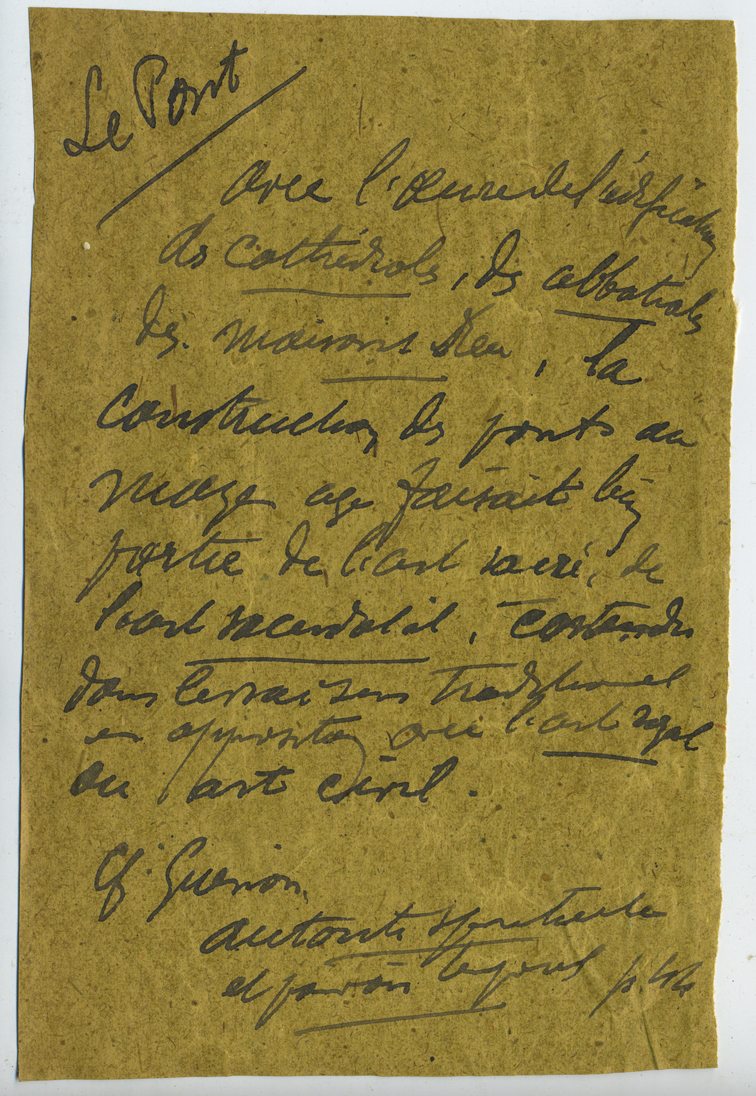 Le Pont
avec l'œuvre de l'édification
des cathédrales, des abbatiales
des maisons Dieu, la
construction des ponts au
moyen age faisait bien
partie de l'art sacré, de
l'art sacerdotal,
dans le sens traditionnel
en opposition avec l'art royal
ou art civil.
cf. Guénon
autorité spirituelle
et pouvoir temporel p.